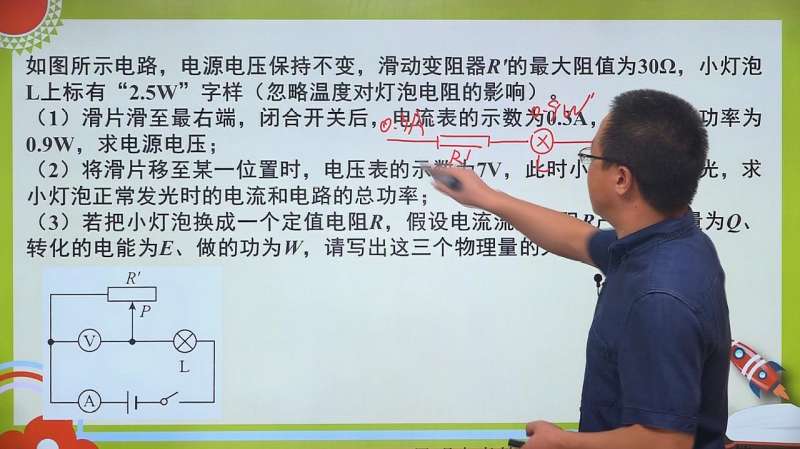 如图所示电路，电源电压保持不变，滑动变阻器R′的最大阻值为30Ω，小灯泡
L上标有“2.5W”字样（忽略温度对灯泡电阻的影响）
（1）滑片滑至最右端，闭合开关后，电流表的示数为0.3A， 功率为
0.9W，求电源电压；
（2）将滑片移至某一位置时，电压表的示数为7V，此时小 光，求
小灯泡正常发光时的电流和电路的总功率；
（3）若把小灯泡换成一个定值电阻R，假设电流流 量为Q、
转化的电能为E、做的功为W，请写出这三个物理量的
0.3A
0.9W
R′
L
R′
P
V
L
A